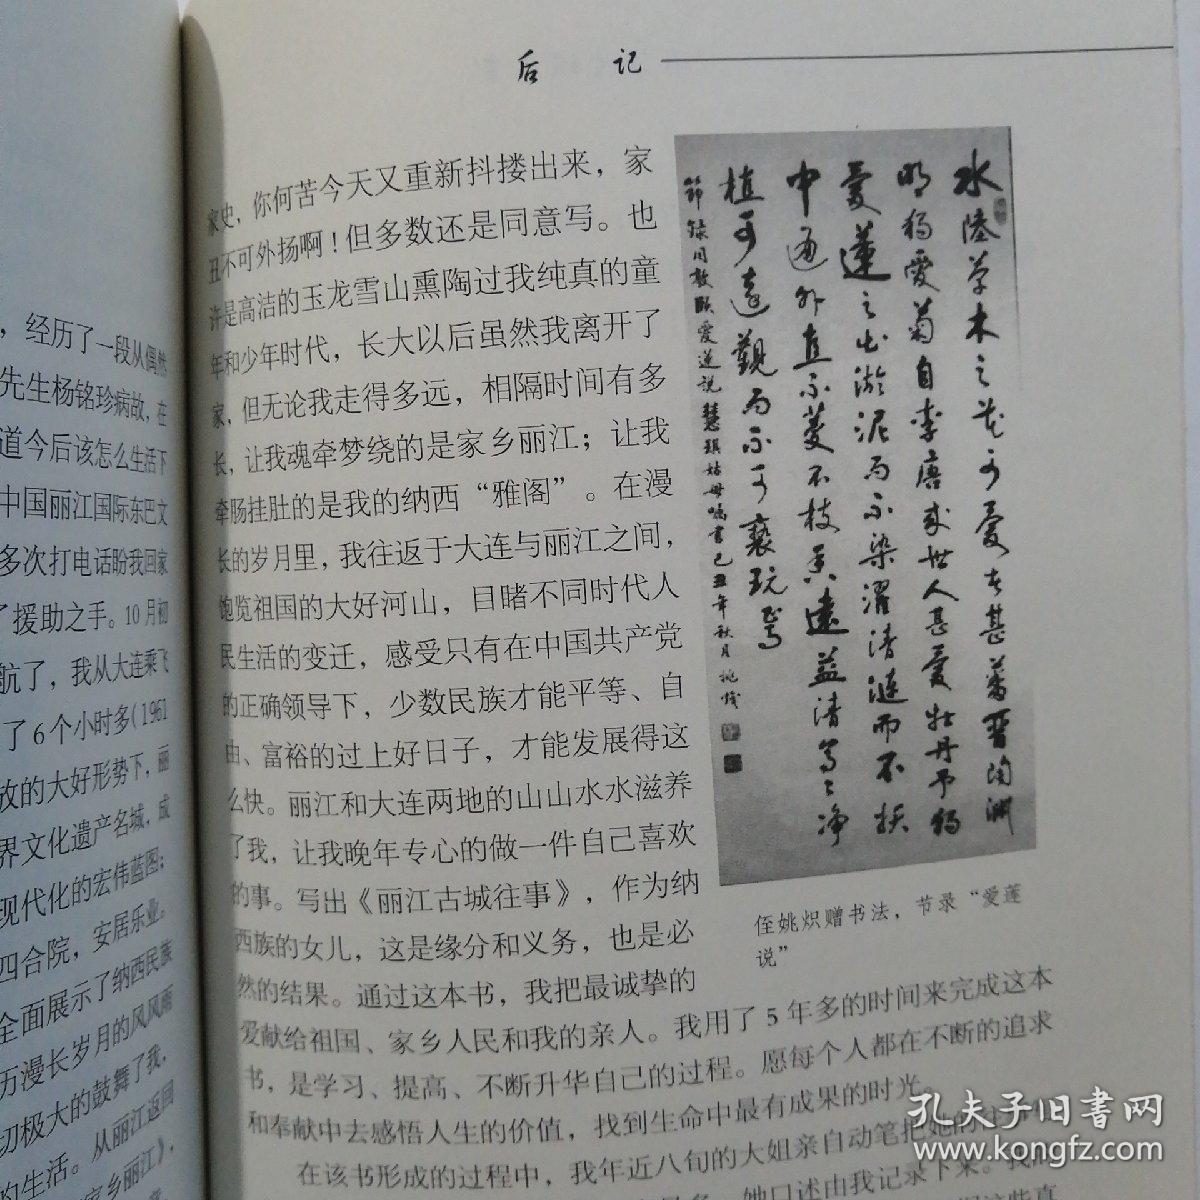 ，经历了一段从偶然
先生杨铭珍病故，在
道今后该怎么生活下
中国丽江国际东巴文
多次打电话盼我回家
了援助之手。10月初
航了，我从大连乘飞
了6个小时多(1961
放的大好形势下，丽
界文化遗产名城，成
现代化的宏伟蓝图；
四合院，安居乐业。
全面展示了纳西民族
历漫长岁月的风风雨
切极大的鼓舞了我，
的生活。从丽江返回
家乡丽江》，
后 记
家史，你何苦今天又重新抖搂出来，家
丑不可外扬啊！但多数还是同意写。也
许是高洁的玉龙雪山熏陶过我纯真的童
年和少年时代，长大以后虽然我离开了
家，但无论我走得多远，相隔时间有多
长，让我魂牵梦绕的是家乡丽江；让我
牵肠挂肚的是我的纳西“雅阁”。在漫
长的岁月里，我往返于大连与丽江之间，
饱览祖国的大好河山，目睹不同时代人
民生活的变迁，感受只有在中国共产党
的正确领导下，少数民族才能平等、自
由、富裕的过上好日子，才能发展得这
么快。丽江和大连两地的山山水水滋养
了我，让我晚年专心的做一件自己喜欢
的事。写出《丽江古城往事》，作为纳
西族的女儿，这是缘分和义务，也是必
然的结果。通过这本书，我把最诚挚的
爱献给祖国、家乡人民和我的亲人。我用了5年多的时间来完成这本
书，是学习、提高、不断升华自己的过程。愿每个人都在不断的追求
和奉献中去感悟人生的价值，找到生命中最有成果的时光。
在该书形成的过程中，我年近八旬的大姐亲自动笔把她
她口述由我记录下来。我
水陆草木之花可爱者甚蕃晋陶渊
明独爱菊自李唐来世人甚爱牡丹予独
爱莲之出淤泥而不染濯清涟而不妖
中通外直不蔓不枝香远益清亭亭净
植可远观而不可亵玩焉
节录周敦颐爱莲说慧琪姑母嘱书己丑年秋月姚炽
侄姚炽赠书法，节录“爱莲
说”
孔夫子旧书网
www.kongfz.com